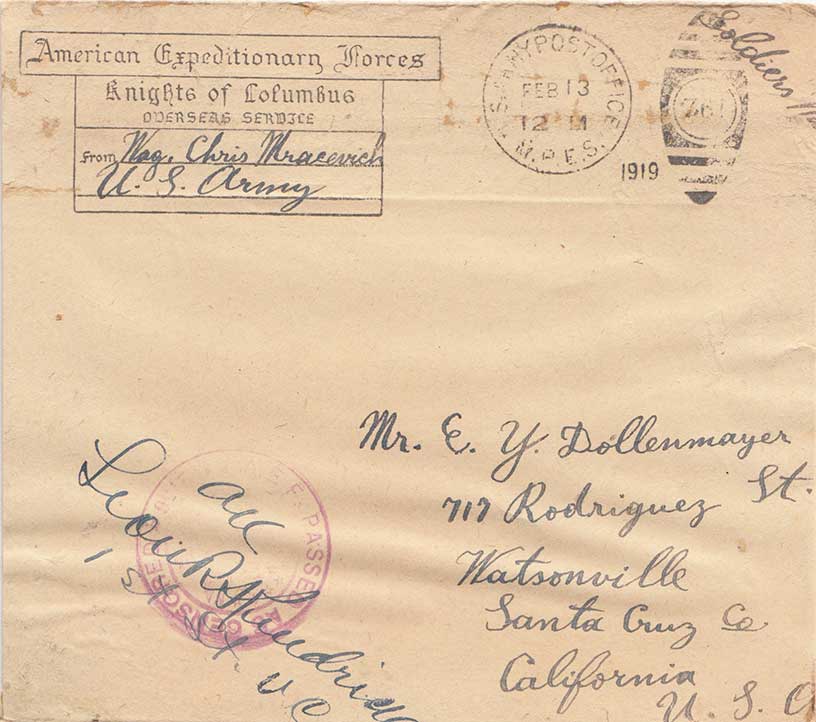 American Expeditionary Forces
Knights of Columbus
OVERSEAS SERVICE
From Wag. Chris Mracevich
U. S. Army
U.S. ARMY POST OFFICE
FEB 13
12 M
M.P.E.S.
1919
761
Soldiers
Mr. E. Y. Dollenmayer
717 Rodriguez St.
Watsonville
Santa Cruz Co
California
U. S. A
A.E.F. PASSED
CENSORED
OK
1st Lt. V C